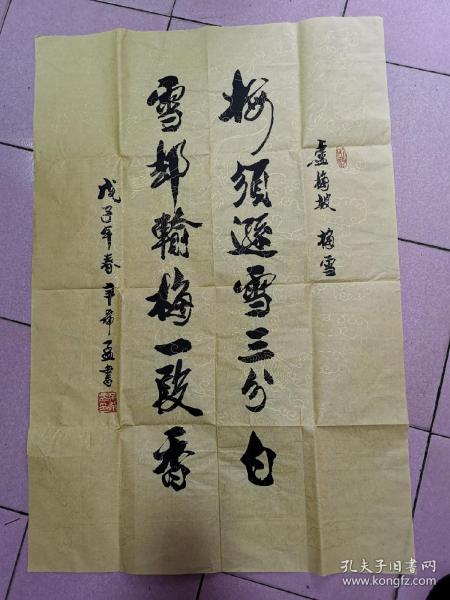 盧梅坡 梅雪
梅須遜雪三分白
雪却輸梅一段香
戊子年春辛希孟書
孔夫子旧书网
www.kongfz.com